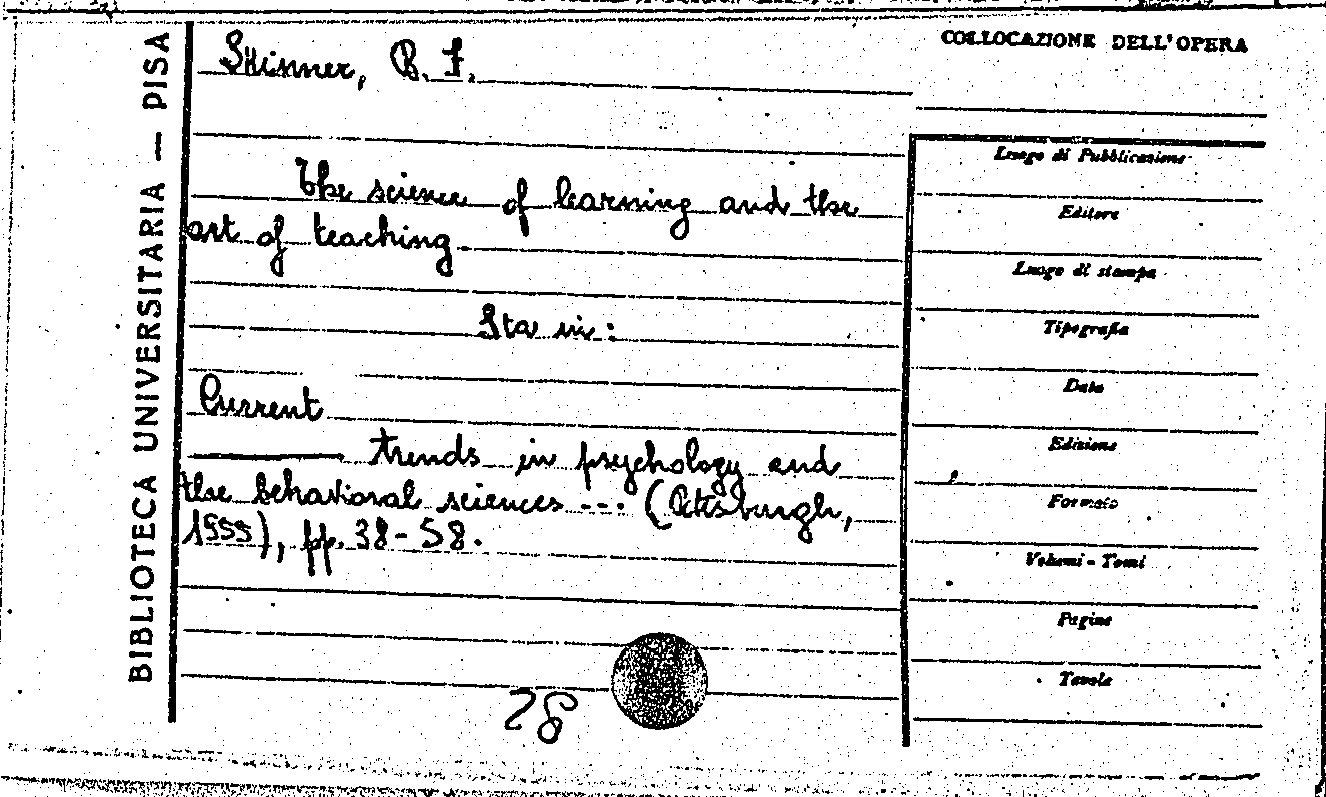 BIBLIOTECA UNIVERSITARIA — PISA
Skinner, B. F.
The science of learning and the
art of teaching.
Sta in:
Current
trends in psychology and
the behavioral sciences --- (Pittsburgh,
1955), pp. 38-58.
28
COLLOCAZIONE DELL'OPERA
Luogo di Pubblicazione
Editore
Luogo di stampa
Tipografia
Data
Edizione
Formato
Volumi - Tomi
Pagine
Tavole